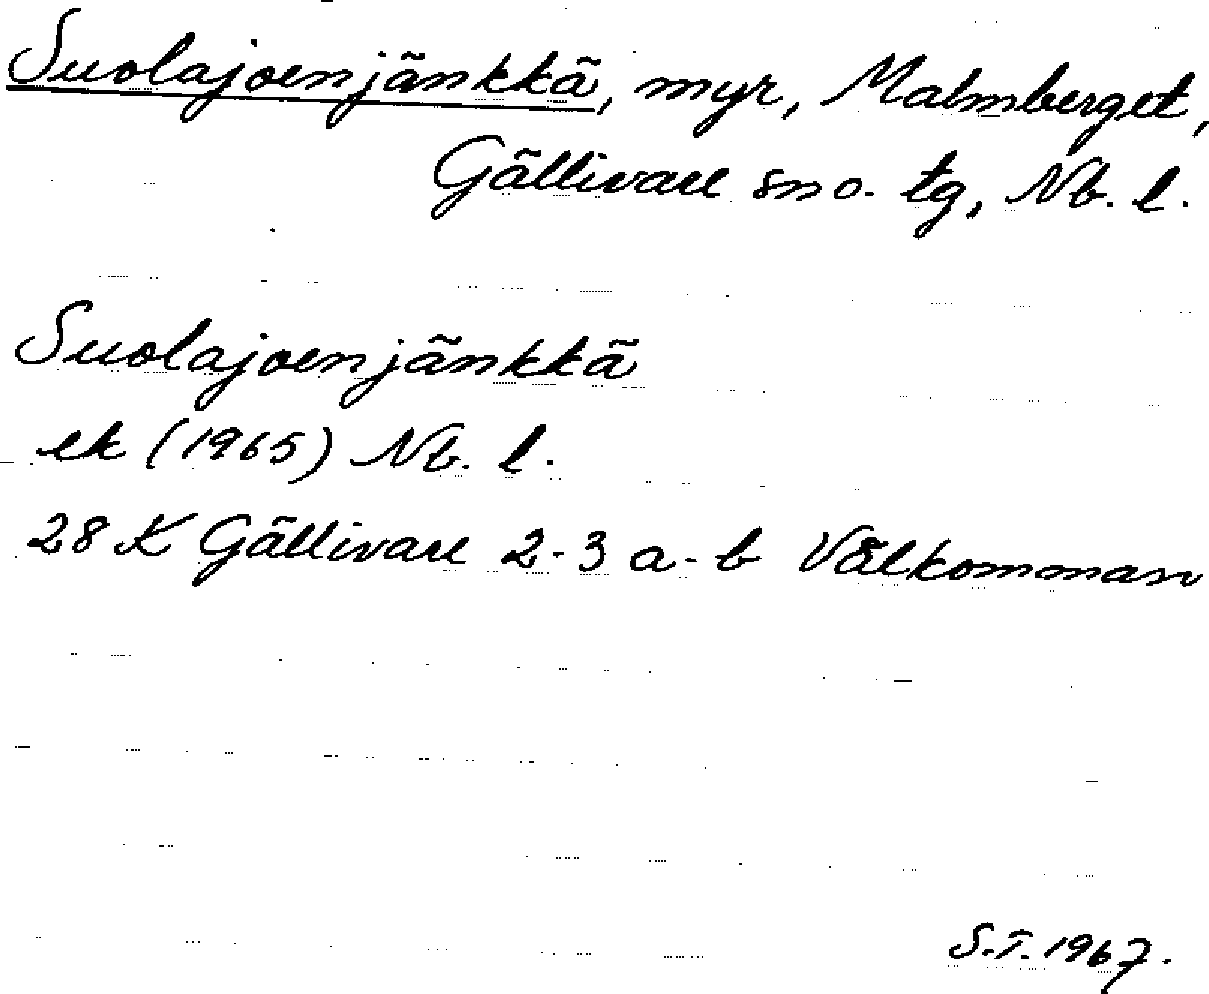 Suolajoenjänkkä, myr, Malmberget,
Gällivare sn o. tg, Nb. l.
Suolajoenjänkkä
ek (1965) Nb. l.
28 K Gällivare 2-3 a-b Välkomman
S.T. 1967.